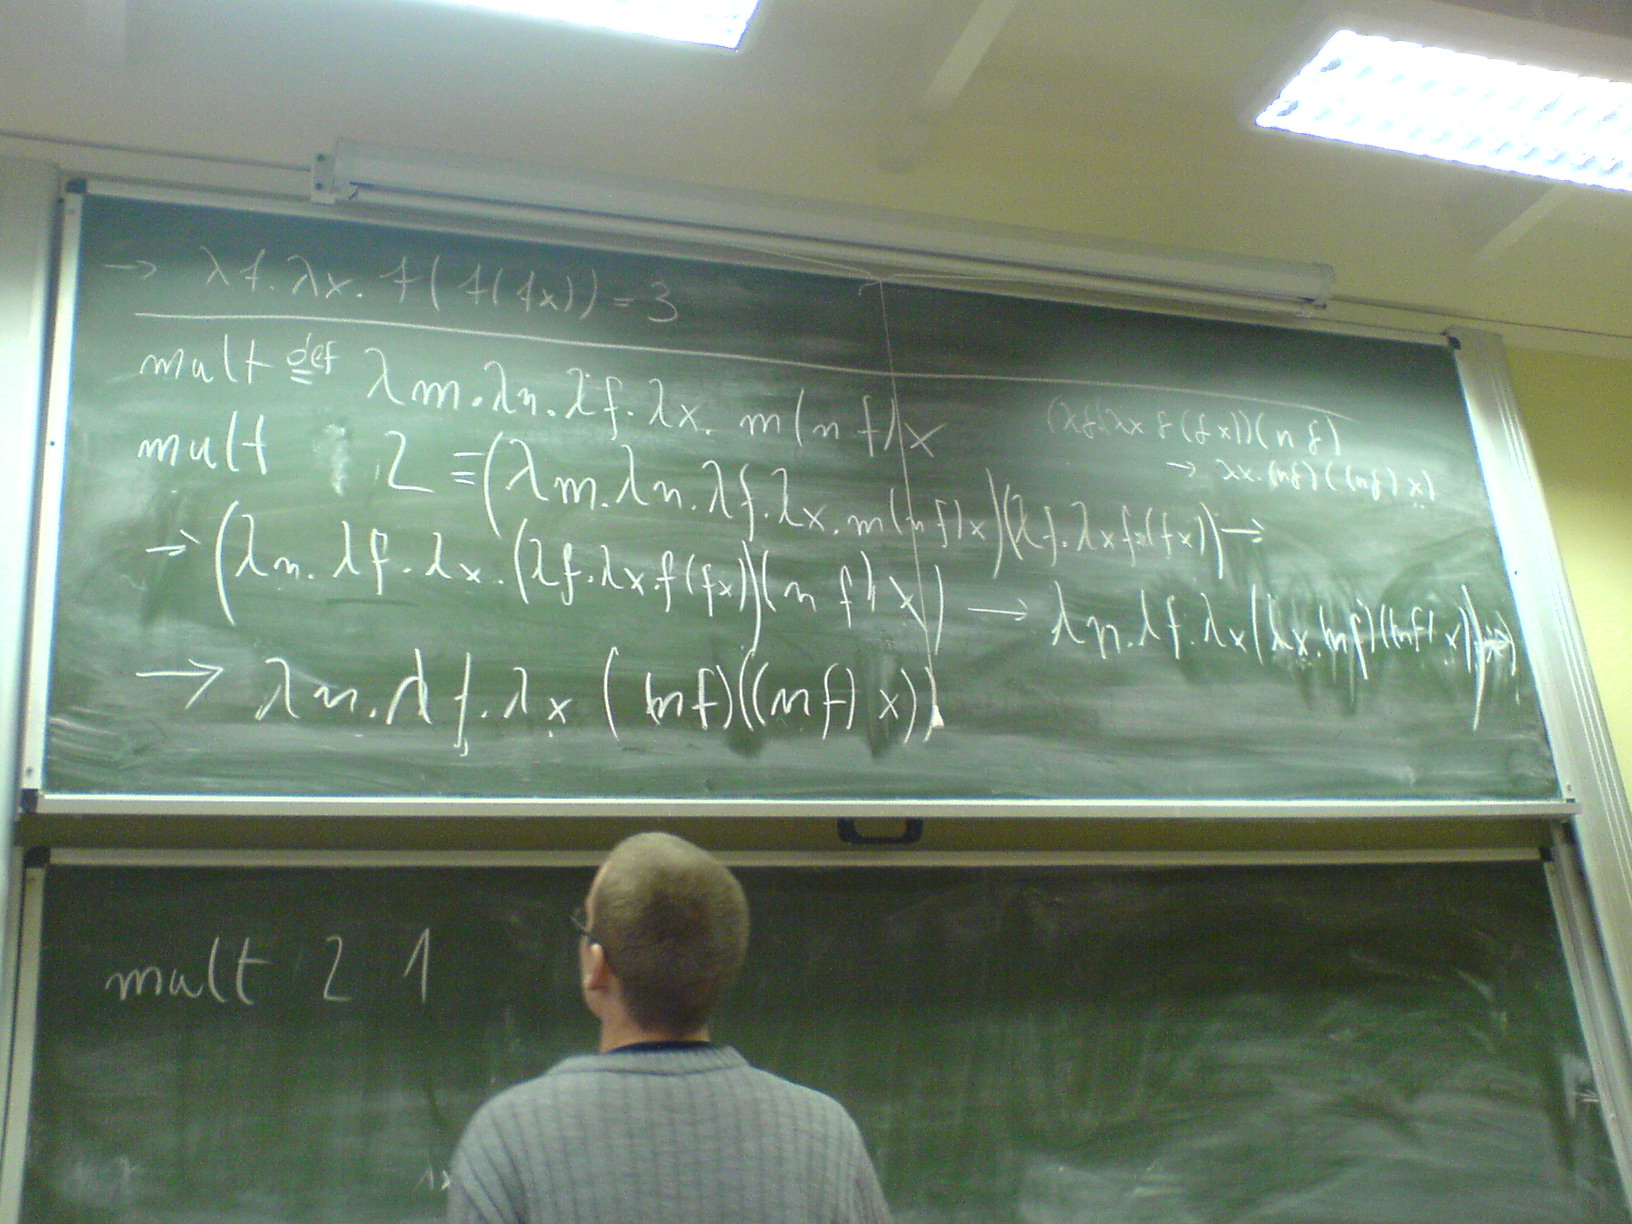 → λf.λx. f(f(fx)) = 3
mult def= λm.λn.λf.λx. m(n f)x
(λf.λx f(fx))(nf)
→ λx.(nf)((nf)x)
mult 2 ≡ (λm.λn.λf.λx.m(nf)x)(λf.λxf(fx)) →
→ (λn.λf.λx.(λf.λx.f(fx))(n f) x) → λn.λf.λx(λx.(nf)((nf)x)
→ λn.λf.λx ((nf)((nf) x))
mult 2 1